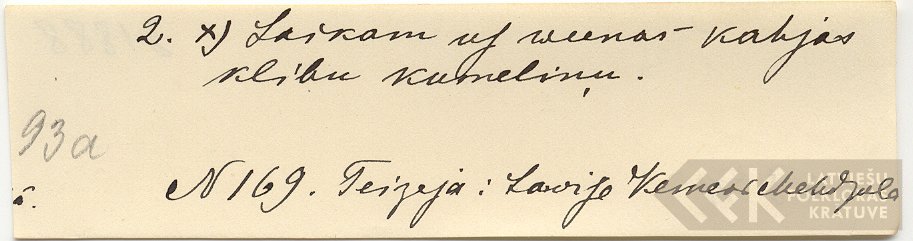 2. x) Laikam uf weenas kahjas
klibu kumeliņu.
93a
N 169. Teizeja: Lawise
LATVIEŠU
FOLKLORAS
KRĀTUVE